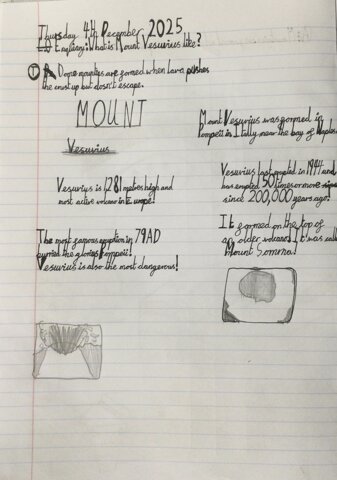 Thursday 4th December 2025
LO Enquiry: What is Mount Vesuvius like?
1 Dome mountains are formed when lava pushes
the crust up but doesn't escape.
MOUNT
Vesuvius
Mount Vesuvius was formed in
Pompeii in Itally near the bay of Naples
Vesuvius is 1281 metres high and
most active volcano in Europe!
Vesuvius last erupted in 1944 and
has erupted 50 times or more since
since 200,000 years ago!
The most famous eruption in 79AD
burried the Pompeii!
Vesuvius is also the most dangerous!
It formed on the top of
an older volcano. It was called
Mount Somma!